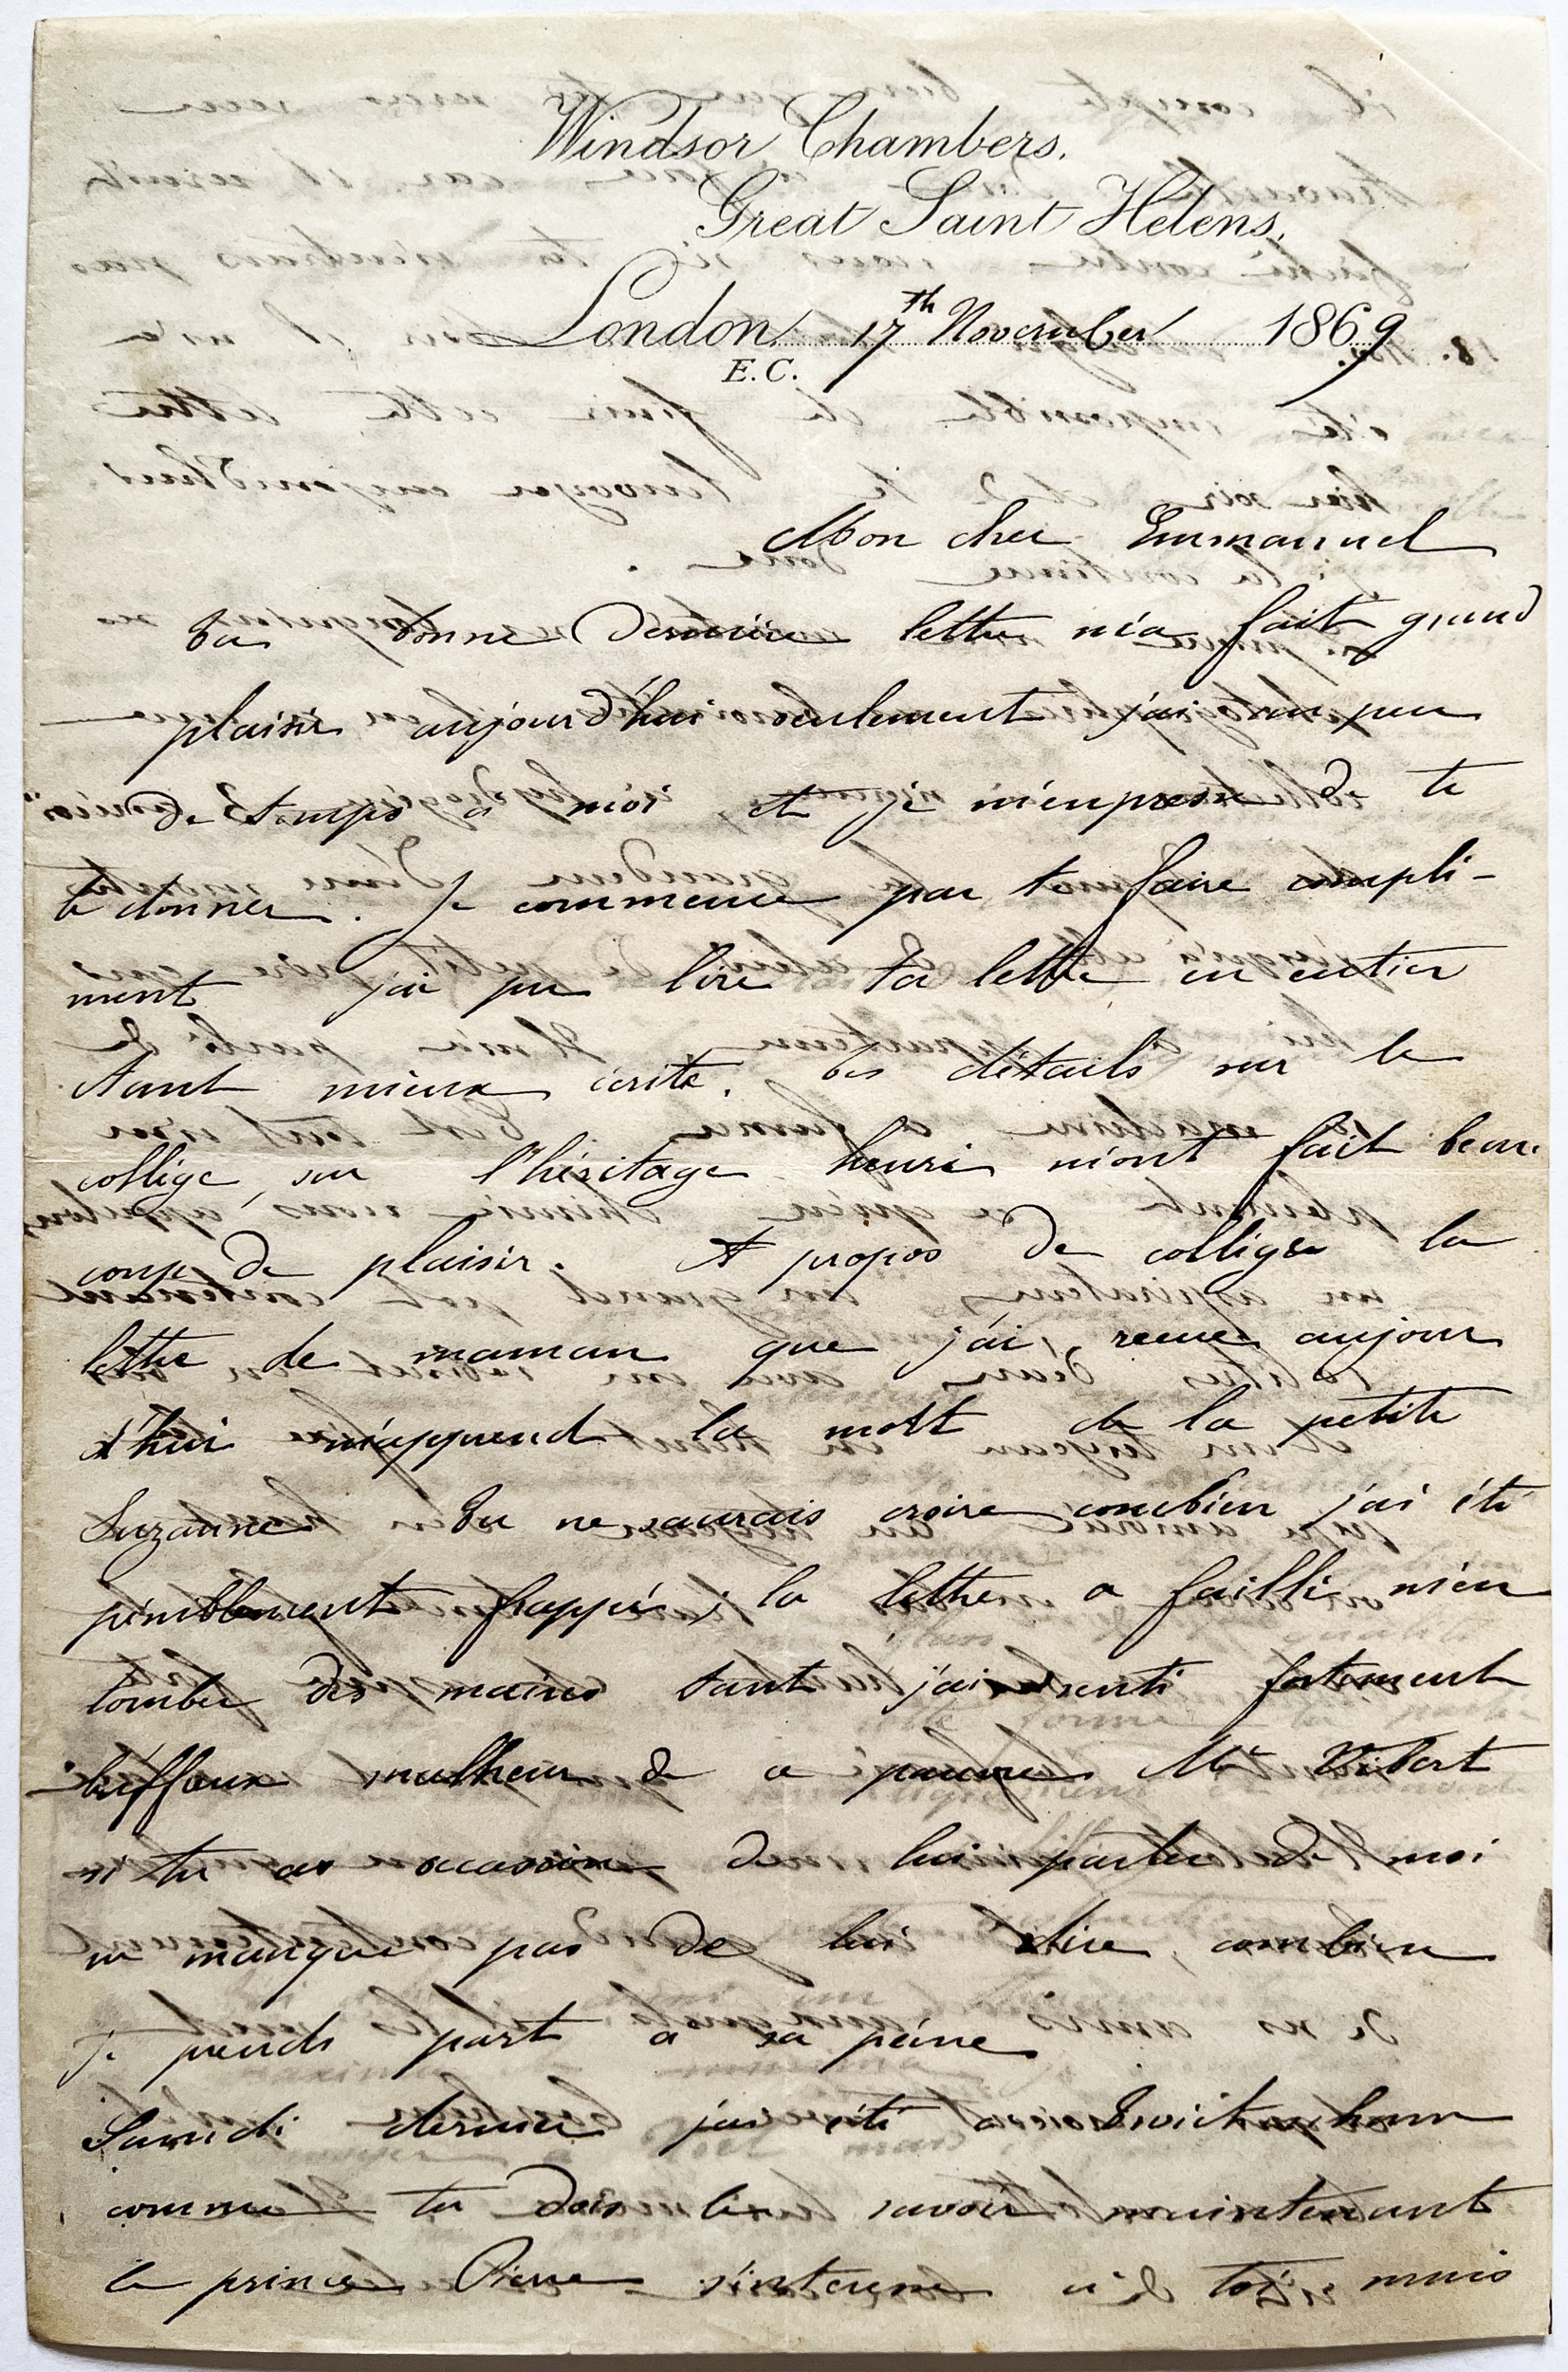 Windsor Chambers.
Great Saint Helens,
London 17th November 1869
E.C.
Mon cher Emmanuel
Ta bonne dernière lettre m'a fait grand
plaisir aujourd'hui seulement j'ai un peu
de temps à moi et je m'empresse de te
le donner. Je commence par te faire compli-
ment j'ai pu lire ta lettre en entier
tant mieux écrite. Tes détails sur le
collège, sur l'héritage henri m'ont fait beau
coup de plaisir. A propos de collège la
lettre de maman que j'ai recue aujour
d'hui m'apprend la mort de la petite
Suzanne Tu ne saurais croire combien j'ai été
péniblement frappé; la lettre a failli m'en
tomber des mains tant j'ai senti fortement
l'affreux malheur de ce pauvre Mr Vibert
si tu as occasion de lui parler de moi
ne manque pas de lui dire, combien
je prends part a sa peine
Samedi dernier j'ai été a Twickenham
comme tu dois le savoir maintenant
le prince Pierre s'interesse à toi mais